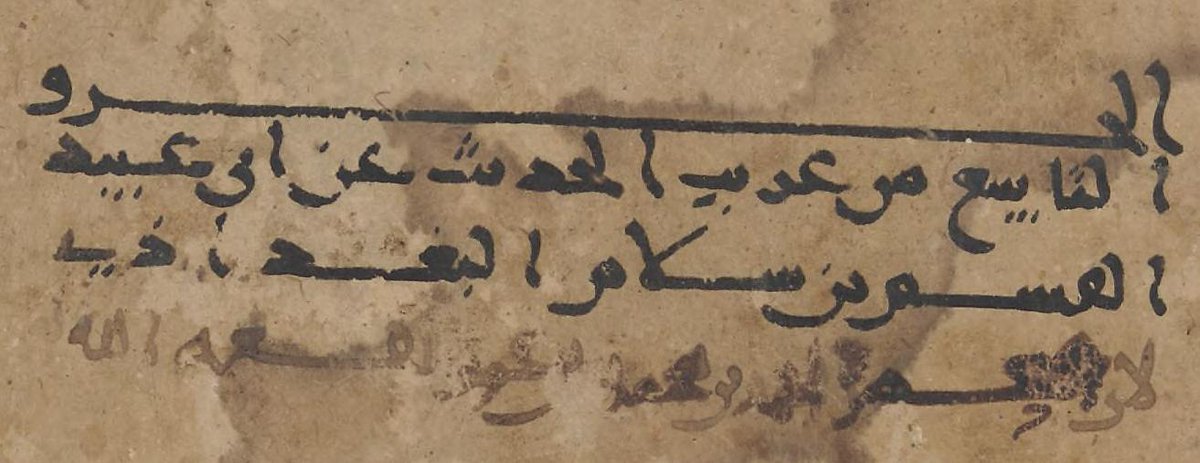 الجزو
التاسع من غريب الحديث عن ابي عبيد
القسم بن سلام البغداذي
بن نفعه الله